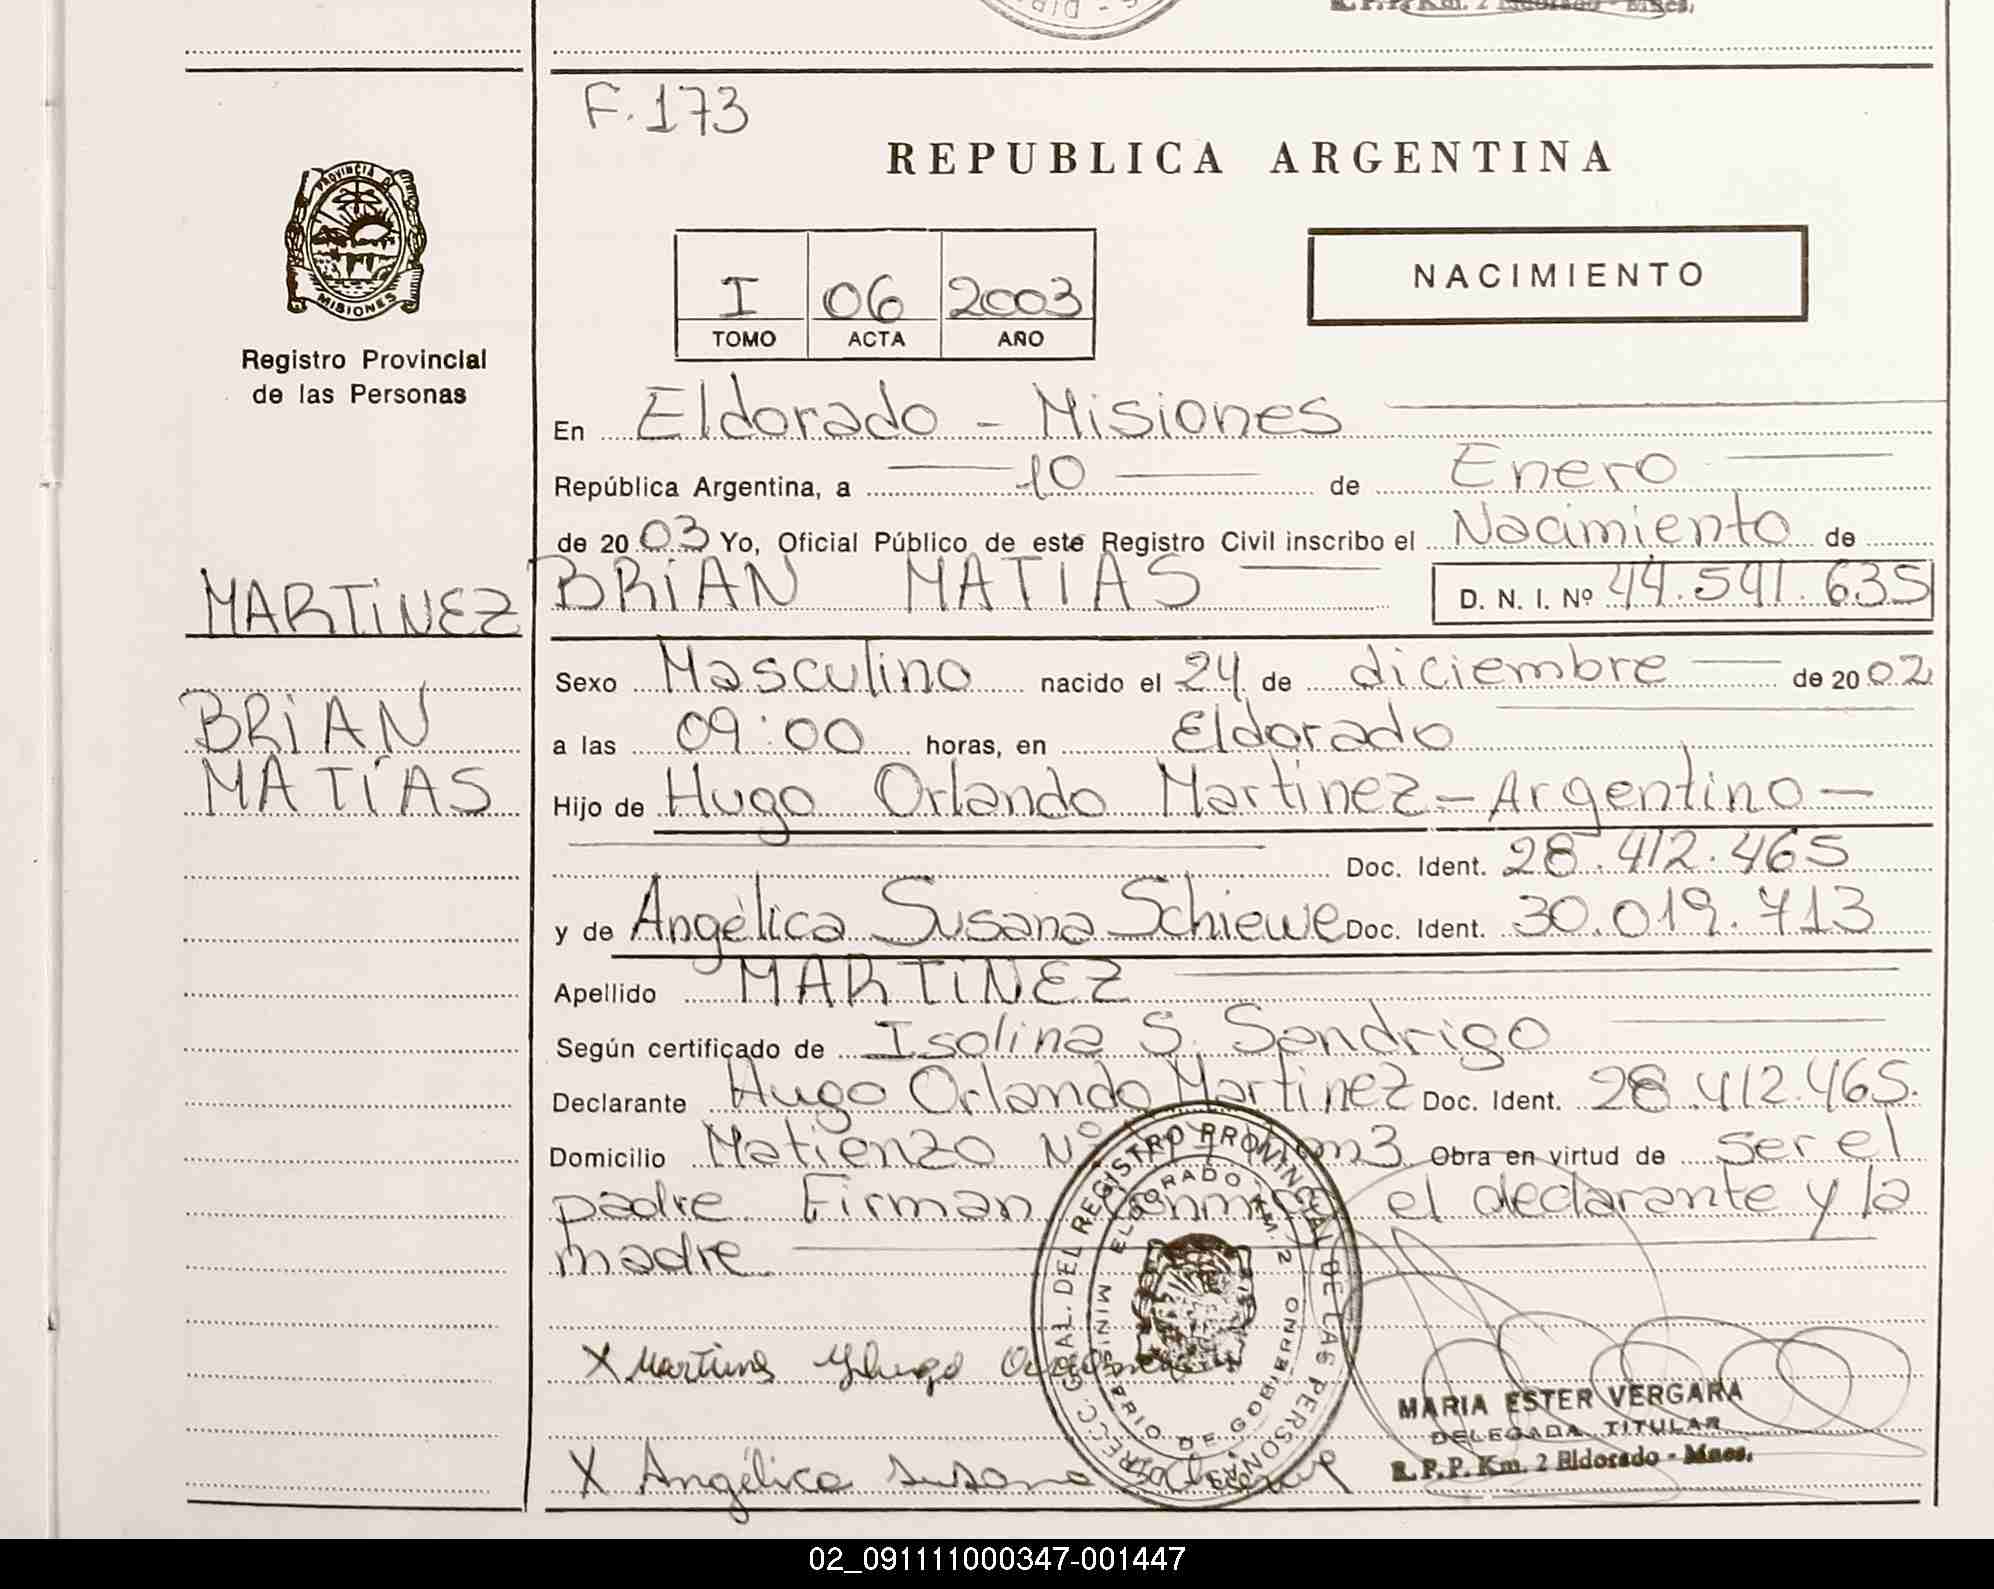 R.P.P. Km. 2 Eldorado - Mnes.
F. 173
REPUBLICA ARGENTINA
PROVINCIA DE
MISIONES
I 06 2003
TOMO ACTA AÑO
NACIMIENTO
Registro Provincial
de las Personas
En Eldorado - Misiones
República Argentina, a 10 de Enero
de 2003 Yo, Oficial Público de este Registro Civil inscribo el Nacimiento de
MARTINEZ BRIAN MATIAS D. N. I. Nº 44.541.635
Sexo Masculino nacido el 24 de diciembre de 2002
BRIAN
a las 09:00 horas, en Eldorado
MATÍAS
Hijo de Hugo Orlando Martinez - Argentino -
Doc. Ident. 28.412.465
y de Angélica Susana Schiewe Doc. Ident. 30.019.713
Apellido MARTINEZ
Según certificado de Isolina S. Sandrigo
Declarante Hugo Orlando Martinez Doc. Ident. 28.412.465.
Domicilio Matienzo Nº Km3 Obra en virtud de ser el
padre Firman conmigo el declarante y la
madre
DIRECC. GRAL. DEL REGISTRO PROVINCIAL DE LAS PERSONAS
ELDORADO KM. 2
MINISTERIO DE GOBIERNO
X Martines Hugo Orlando
X Angélica Susana
MARIA ESTER VERGARA
DELEGADA TITULAR
R.P.P. Km. 2 Eldorado - Mnes.
02_091111000347-001447